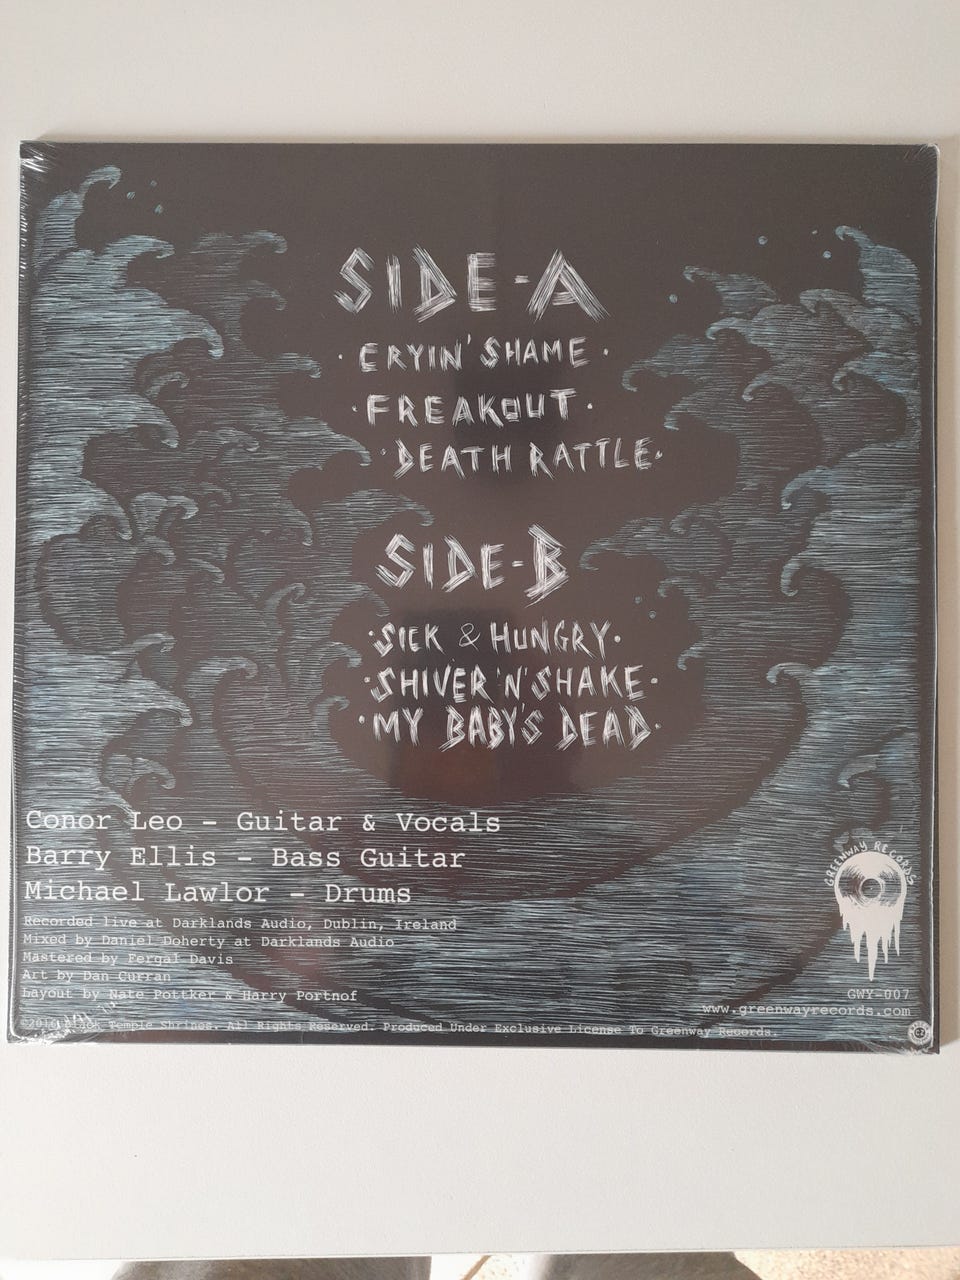 SIDE-A
· CRYIN' SHAME ·
· FREAKOUT ·
· DEATH RATTLE ·
SIDE-B
· SICK & HUNGRY ·
· SHIVER 'N' SHAKE ·
· MY BABY'S DEAD ·
Conor Leo – Guitar & Vocals
Barry Ellis – Bass Guitar
Michael Lawlor – Drums
Recorded live at Darklands Audio, Dublin, Ireland
Mixed by Daniel Doherty at Darklands Audio
Mastered by Fergal Davis
Art by Dan Curran
Layout by Nate Pottker & Harry Portnof
Temple Shrines. All Rights Reserved. Produced Under Exclusive License To Greenway Records.
GREENWAY RECORDS
GWY-007
www.greenwayrecords.com